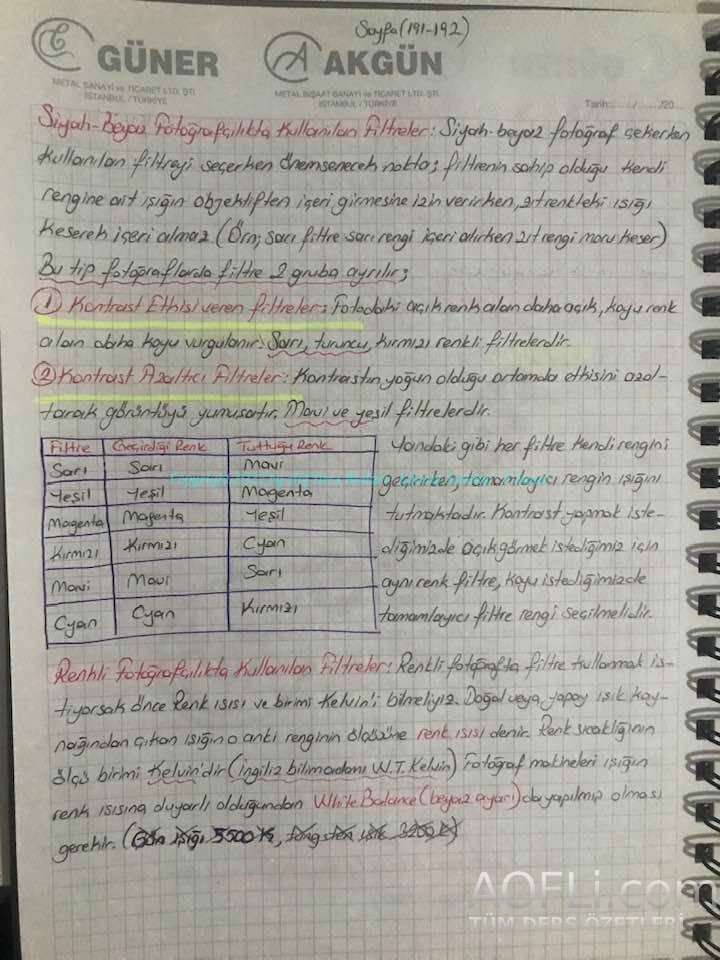 Sayfa (191-192)
GÜNER
METAL SANAYİ ve TİCARET LTD. ŞTİ
İSTANBUL / TÜRKİYE
AKGÜN
METAL İNŞAAT SANAYİ ve TİCARET LTD. ŞTİ.
İSTANBUL / TÜRKİYE
Tarih: ...../...../20.....
Siyah-Beyaz Fotoğrafçılıkta Kullanılan Filtreler: Siyah-beyaz fotoğraf çekerken
kullanılan filtreyi seçerken önemsenecek nokta; filtrenin sahip olduğu kendi
rengine ait ışığın objektiften içeri girmesine izin verirken, zıt renkteki ışığı
keserek içeri almaz. (Örn; sarı filtre sarı rengi içeri alırken zıt rengi moru keser)
Bu tip fotoğraflarda filtre 2 gruba ayrılır;
1 Kontrast Etkisi veren filtreler: Fotodaki açık renk alan daha açık, koyu renk
alan daha koyu vurgulanır. Sarı, turuncu, kırmızı renkli filtrelerdir.
2 Kontrast Azaltıcı Filtreler: Kontrastın yoğun olduğu ortamda etkisini azal-
tarak görüntüyü yumuşatır. Mavi ve yeşil filtrelerdir.
Filtre Geçirdiği Renk Tuttuğu Renk
Sarı Sarı Mavi
Yeşil Yeşil Magenta
Magenta Magenta Yeşil
Kırmızı Kırmızı Cyan
Mavi Mavi Sarı
Cyan Cyan Kırmızı
Yandaki gibi her filtre kendi rengini
geçirirken, tamamlayıcı rengin ışığını
tutmaktadır. Kontrast yapmak iste-
diğimizde açık görmek istediğimiz için
aynı renk filtre, koyu istediğimizde
tamamlayıcı filtre rengi seçilmelidir.
Renkli Fotoğrafçılıkta Kullanılan Filtreler: Renkli fotoğrafta filtre kullanmak is-
tiyorsak önce Renk ısısı ve birimi Kelvin'i bilmeliyiz. Doğal veya yapay ışık kay-
nağından çıkan ışığın o anki renginin ölçüsüne renk ısısı denir. Renk sıcaklığının
ölçü birimi Kelvin'dir (İngiliz bilim adamı W.T. Kelvin) Fotoğraf makineleri ışığın
renk ısısına duyarlı olduğundan White Balance (beyaz ayarı) da yapılmış olması
gerekir. (Gün ışığı 5500 K, tungsten ışık 3200 K)
AOFLi.com
TÜM DERS ÖZETLERİ